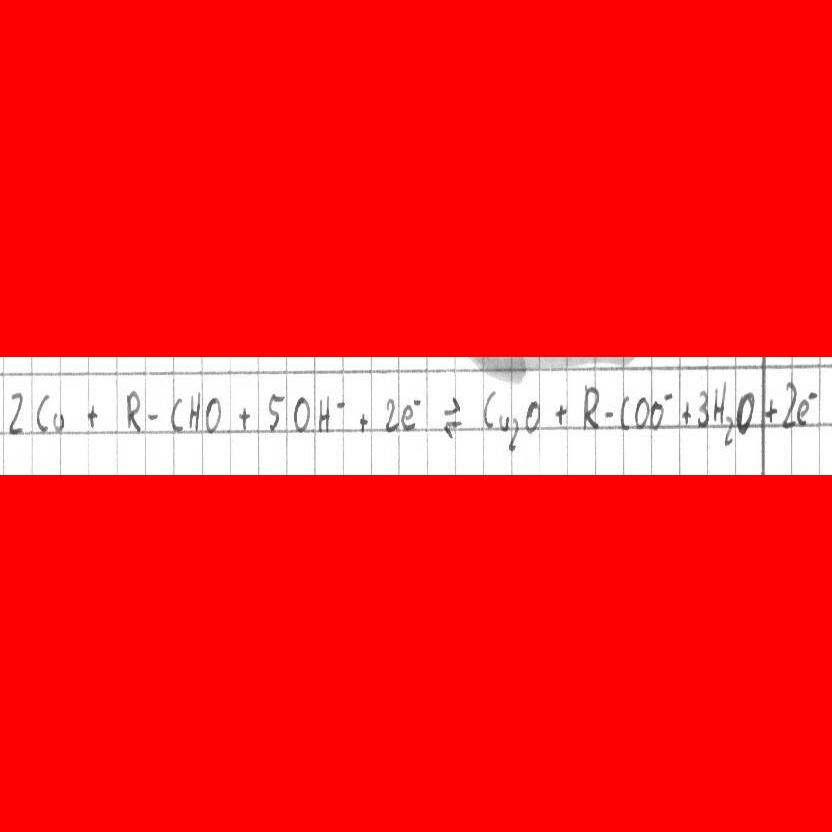 2 Cu + R-CHO + 5 OH⁻ + 2e⁻ ⇌ Cu₂O + R-COO⁻ + 3H₂O + 2e⁻